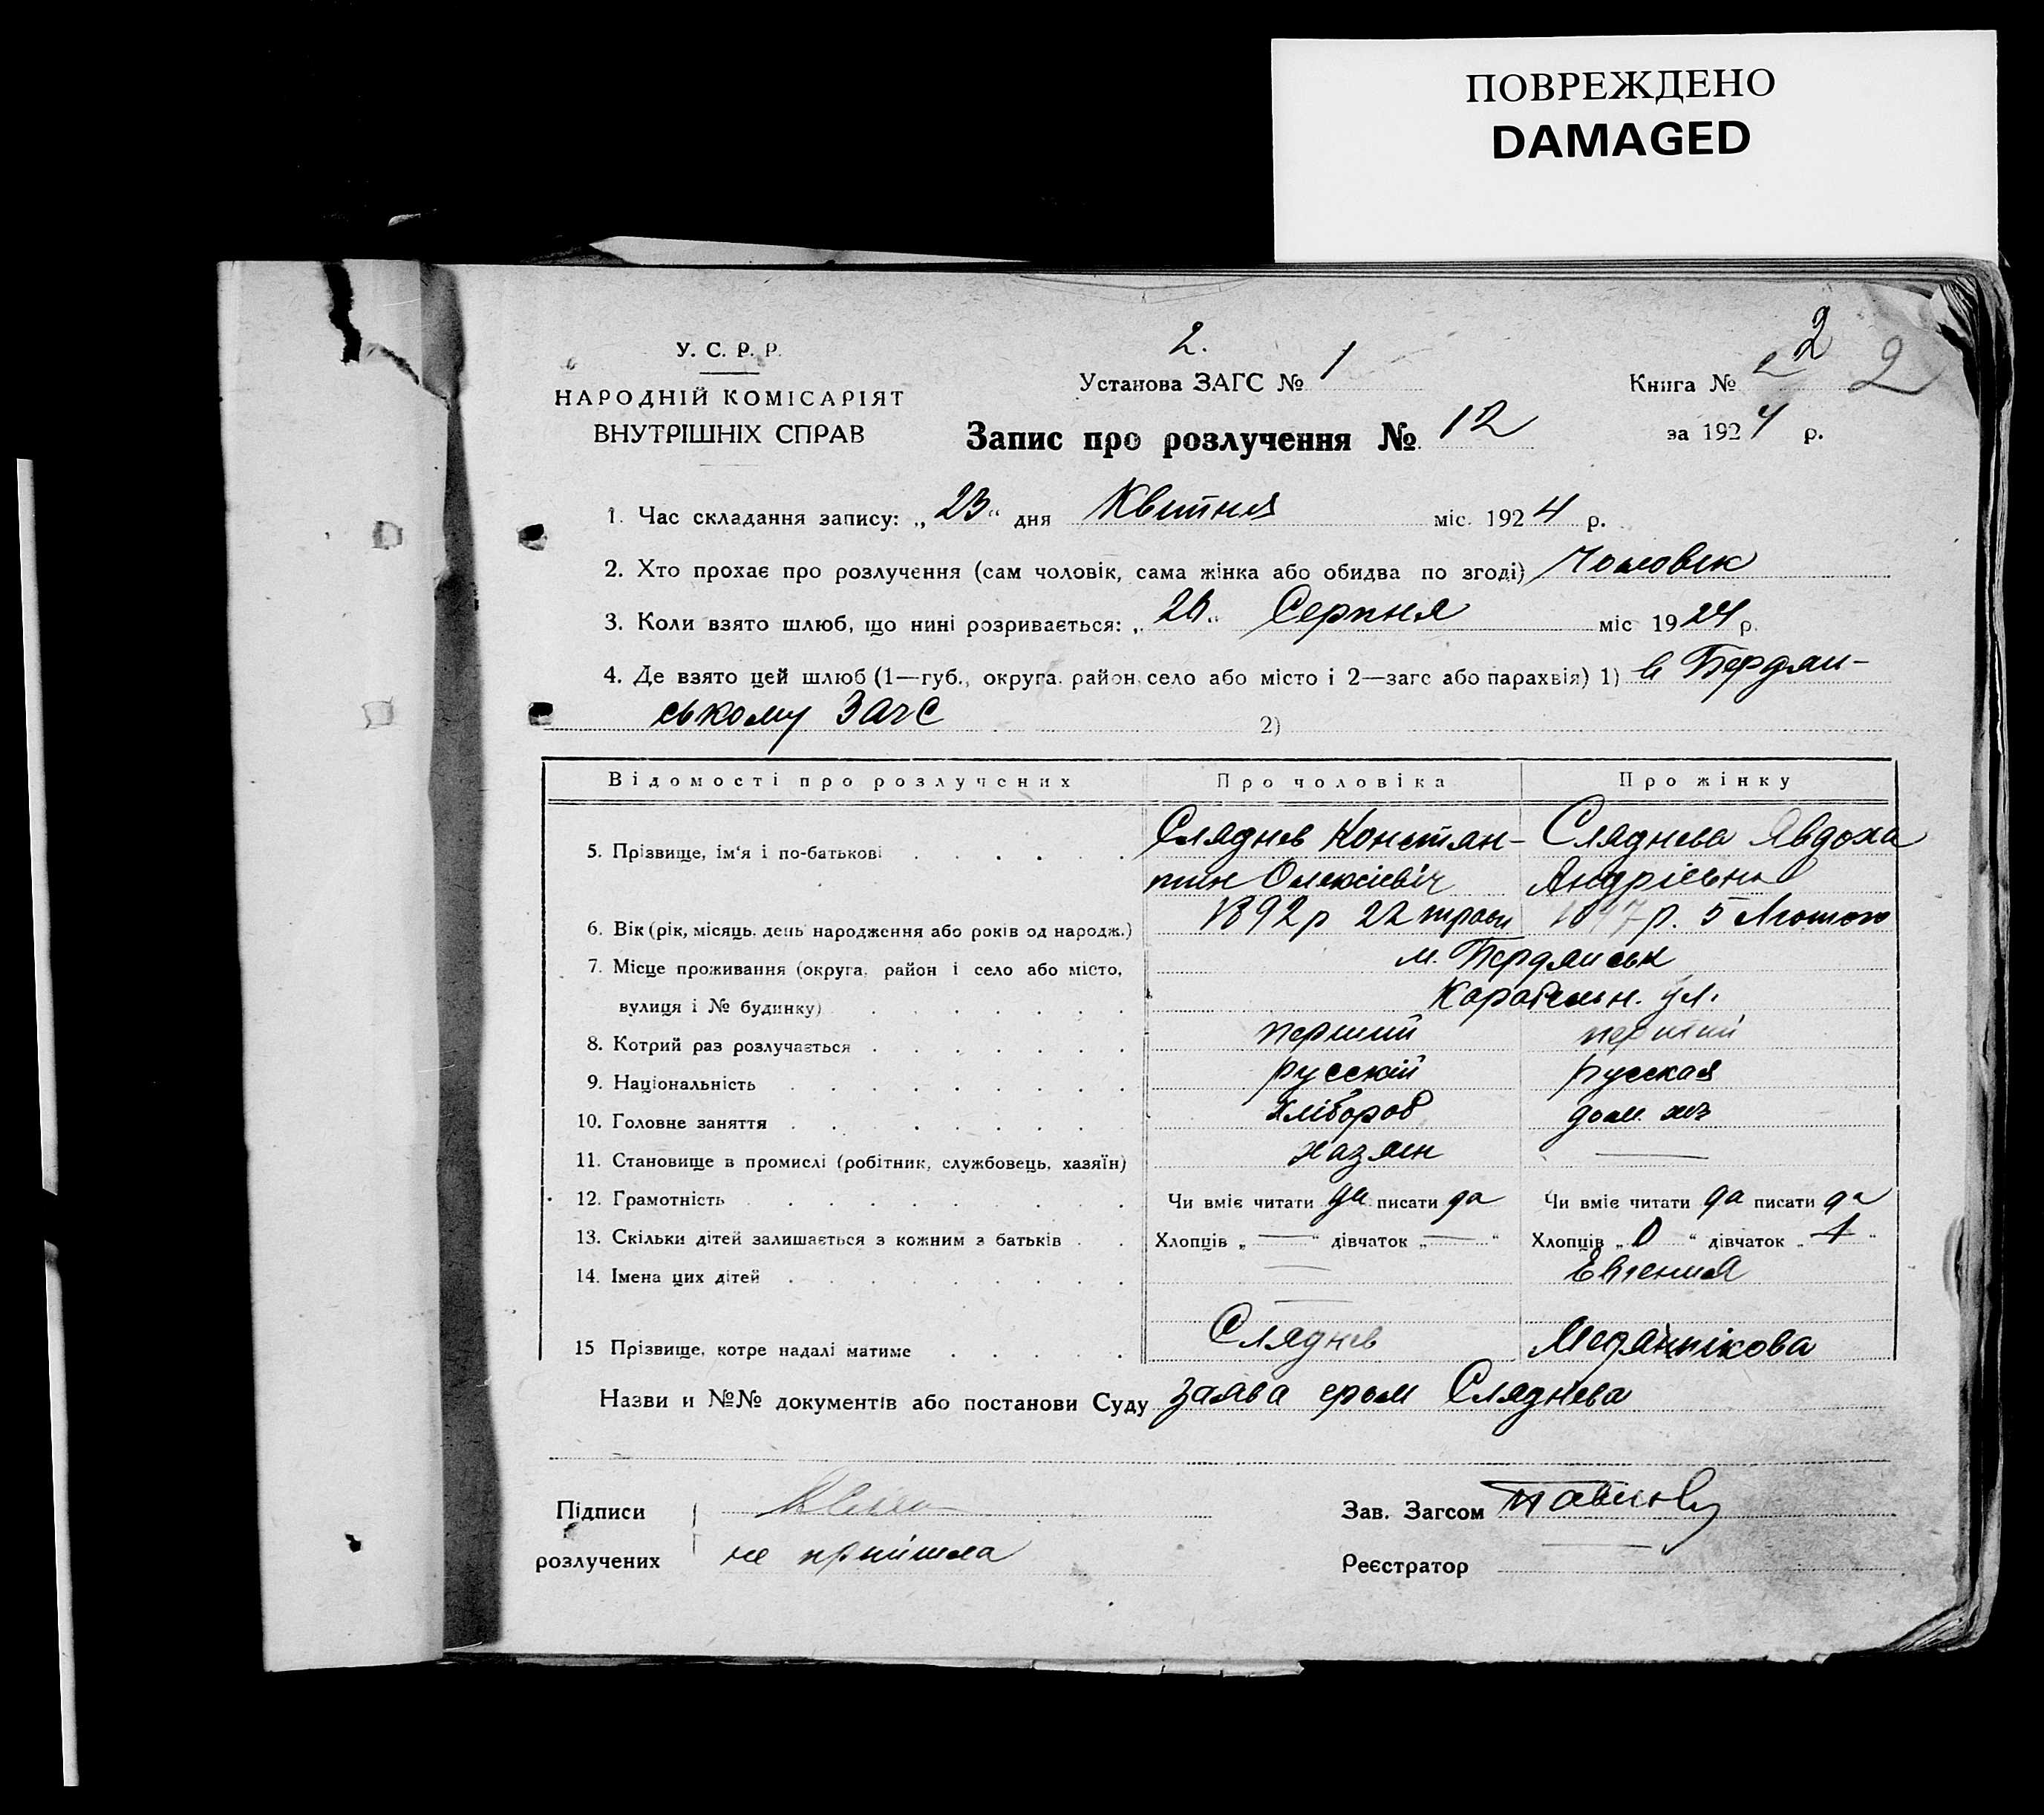 ПОВРЕЖДЕНО
DAMAGED
2
У. С. Р. Р.
2.
2
НАРОДНІЙ КОМІСАРІЯТ
ВНУТРІШНІХ СПРАВ
Установа ЗАГС № 1
Книга № 2
Запис про розлучення № 12
за 1924 р.
1. Час складання запису: „23“ дня Квітня міс. 1924 р.
2. Хто прохає про розлучення (сам чоловік, сама жінка або обидва по згоді) Чоловік
3. Коли взято шлюб, що нині розривається: „ “ Серпня міс 19 р.
4. Де взято цей шлюб (1—губ., округа, район, село або місто і 2—загс або парахвія) 1) в Бердян-
ському Загс 2)
Відомості про розлучених Про чоловіка Про жінку
5. Прізвище, ім'я і по-батькові Сляднев Констан- Сляднева Явдоха
тин Олексієвіч Андріевна
6. Вік (рік, місяць, день народження або років од народж.) 1892 р 22 травн р. 5 Лютого
7. Місце проживання (округа, район і село або місто, м. Бердянськ
вулиця і № будинку) ул.
8. Котрий раз розлучається перший перший
9. Національність русскій русская
10. Головне заняття хлібороб дом. хоз
11. Становище в промислі (робітник, службовець, хазяїн) хазяин —
12. Грамотність Чи вміє читати да писати да Чи вміє читати да писати да
13. Скільки дітей залишається з кожним з батьків Хлопців „—“ дівчаток „—“ Хлопців „0“ дівчаток „1“
14. Імена цих дітей — Евгения
—
15 Прізвище, котре надалі матиме Сляднев
Назви и №№ документів або постанови Суду заява Сляднева
Підписи
Зав. Загсом
розлучених не прийшла
Реєстратор —